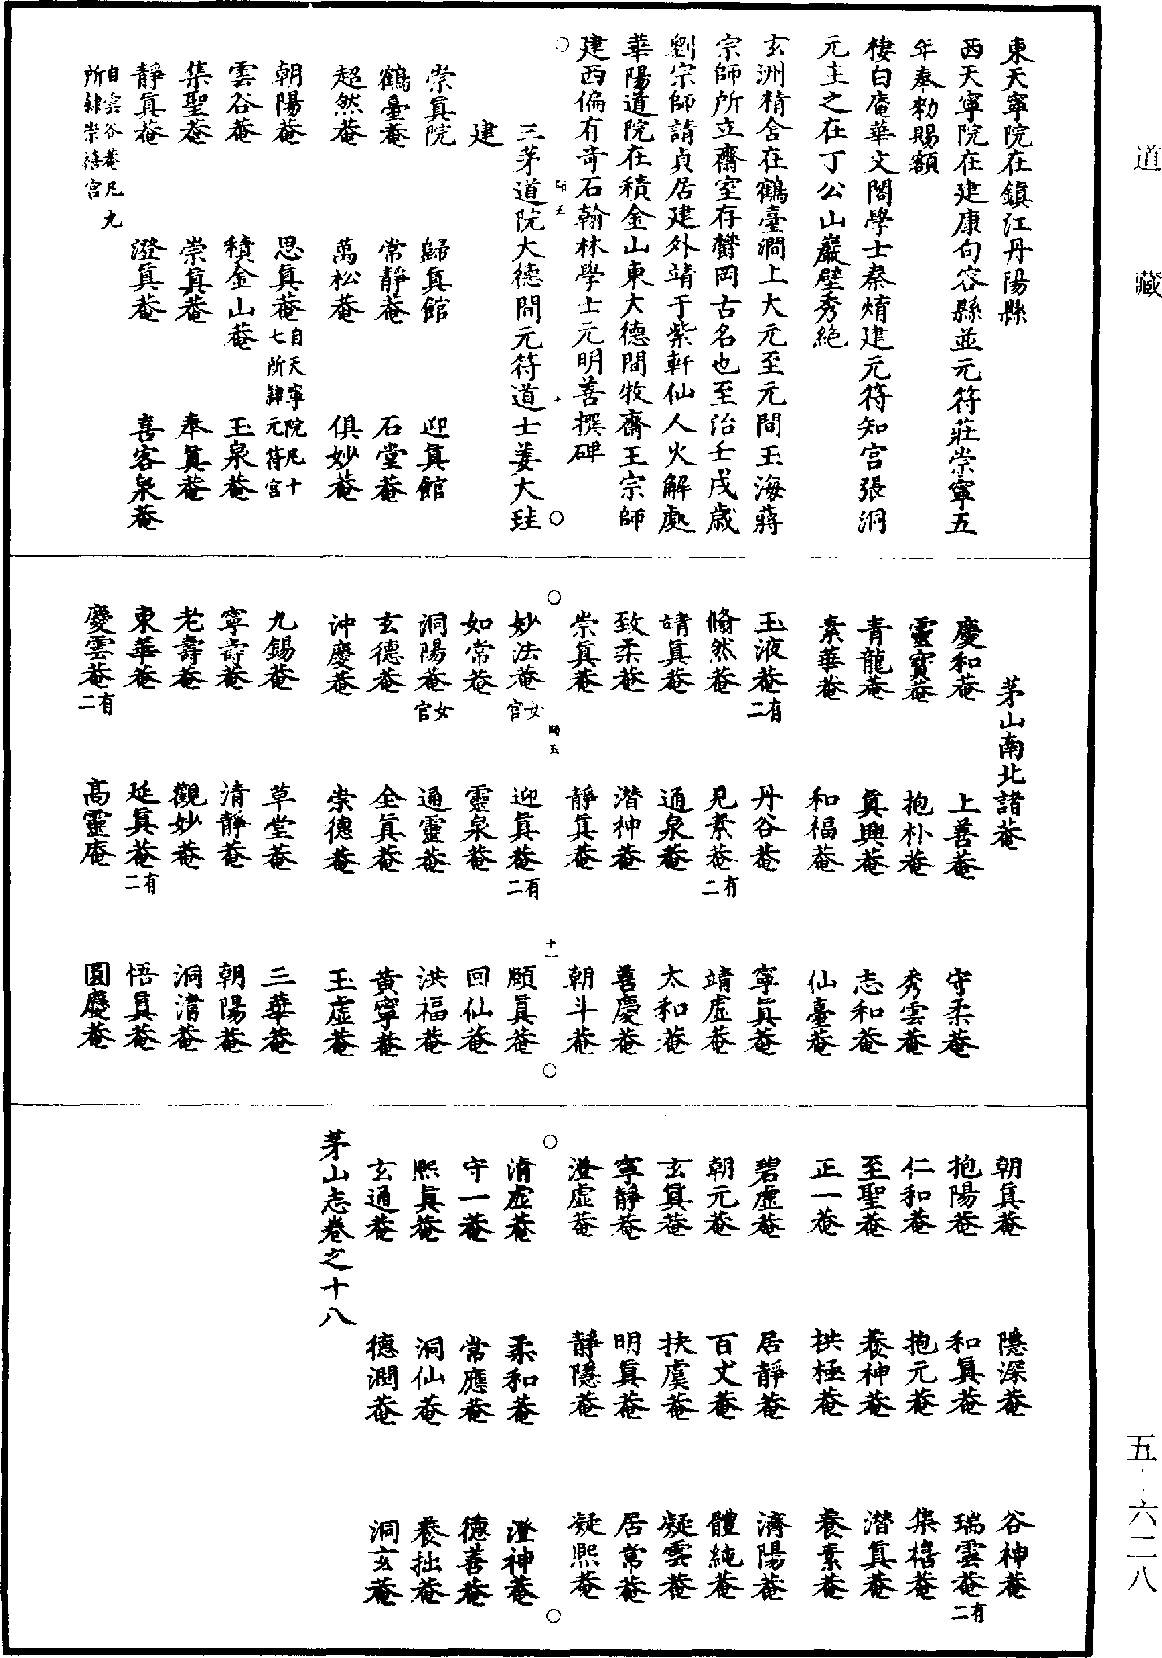 道藏
東天寧院在鎮江丹陽縣
西天寧院在建康句容縣並元符莊崇寧五
年奉勑賜額
棲白庵華文閣學士秦焴建元符知宮張洞
元主之在丁公山巖壁秀絶
玄洲精舍在鶴臺澗上大元至元間玉海蔣
宗師所立齋室存欝岡古名也至治壬戌歲
劉宗師請貞居建外靖于紫軒仙人火解處
華陽道院在積金山東大德間牧齋王宗師
建西偏有奇石翰林學士元明善撰碑
三茅道院大德間元符道士姜大珪
建
崇真院 歸真館 迎真館
鶴臺菴 常靜菴 石堂菴
超然菴 萬松菴 俱妙菴
朝陽菴 思真菴自天寧院凡十七所隸元符宮
雲谷菴 積金山菴 玉泉菴
集聖菴 崇真菴 奉真菴
靜真菴 澄真菴 喜客泉菴
自雲谷菴凡九所隸崇禧宮
茅山南北諸菴
慶和菴 上善菴 守柔菴
靈寶菴 抱朴菴 秀雲菴
青龍菴 真興菴 志和菴
素華菴 和福菴 仙臺菴
玉液菴有二 丹谷菴 寧真菴
翛然菴 見素菴有二 靖虛菴
靖真菴 通泉菴 太和菴
致柔菴 潛神菴 善慶菴
崇真菴 靜真菴 朝斗菴
妙法菴女官 迎真菴有二 頤真菴
如常菴 靈泉菴 回仙菴
洞陽菴女官 通靈菴 洪福菴
玄德菴 全真菴 黃寧菴
沖慶菴 崇德菴 玉虛菴
九錫菴 草堂菴 三華菴
寧壽菴 清靜菴 朝陽菴
老壽菴 觀妙菴 洞清菴
東華菴 延真菴有二 悟真菴
慶雲菴有二 高靈庵 圓應菴
朝真菴 隱深菴 谷神菴
抱陽菴 和真菴 瑞雲菴有二
仁和菴 抱元菴 集禧菴
至聖菴 養神菴 潛真菴
正一菴 拱極菴 養素菴
碧虛菴 居靜菴 濟陽菴
朝元菴 百丈菴 體純菴
玄真菴 扶虞菴 凝雲菴
寧靜菴 明真菴 居常菴
澄虛菴 靜隱菴 凝熙菴
清虛菴 柔和菴 澄神菴
守一菴 常應菴 德善菴
熙真菴 洞仙菴 養拙菴
玄通菴 德潤菴 洞玄菴
茅山志卷之十八
五·六二八